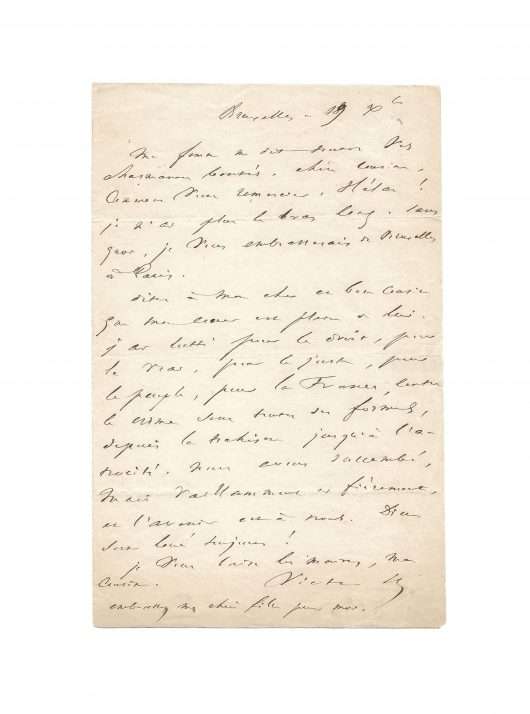 Bruxelles - 19 Xbre
Ma femme me dit toutes vos
charmantes bontés, chère cousine,
comment vous remercier. Hélas !
je n'ai plus le bras long, sans
quoi, je vous embrasserais de Bruxelles
à Paris.
dites à mon cher et bon cousin
que mon cœur est plein de lui.
j'ai lutté pour le droit, pour
le vrai, pour le juste, pour
le peuple, pour la France, contre
le crime sous toutes ses formes,
depuis la trahison jusqu'à l'a-
trocité. Nous avons succombé,
mais vaillamment et fièrement,
et l'avenir est à nous. Dieu
soit loué toujours !
je vous baise les mains, ma
cousine. Victor H
embrassez ma chère fille pour moi.